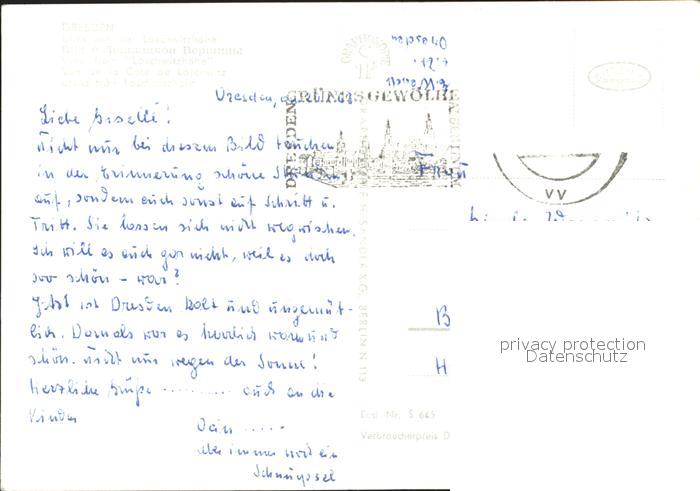 DRESDEN
Blick von der Loschwitzhöhe
View from "Loschwitzhöhe"
GRAPHOKOPIE
Dresden
Dresden, d.
GRÜNES GEWÖLBE
DRESDEN
ALBERTINUM
Liebe Giselle!
Nicht nur bei diesem Bild tauchen
in der Erinnerung schöne
auf, sondern auch sonst auf Schritt u.
Tritt. Sie lassen sich nicht wegwischen.
Ich will es auch gar nicht, weil es doch
soo schön – war?
Jetzt ist Dresden kalt und ungemüt-
lich. Damals war es herrlich warm und
schön. Nicht nur wegen der Sonne!
Herzliche Grüße .......... auch an die
Kinder
Dein .....
aber immer noch ein
Schnüpsel
Frau
VV
B
H
BERLIN N 113
Best.-Nr. S 645
Verbraucherpreis D
privacy protection
Datenschutz